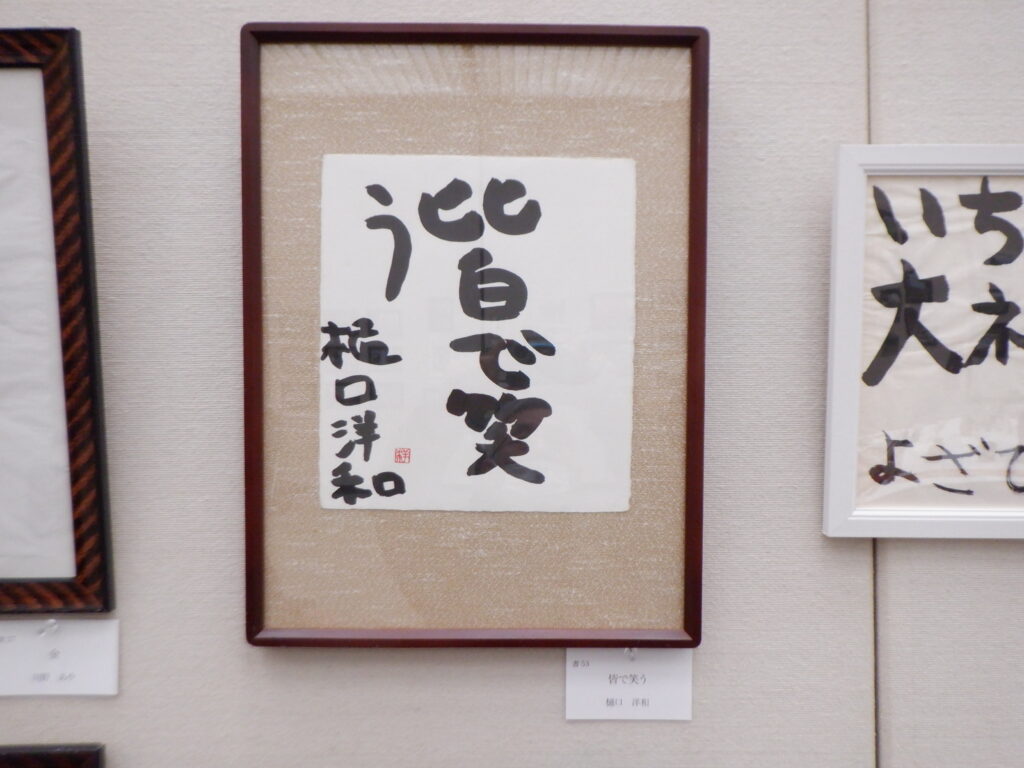 皆で笑
う
樋口洋和
いち
大ネ
よざ
書53
皆で笑う
樋口 洋和
金